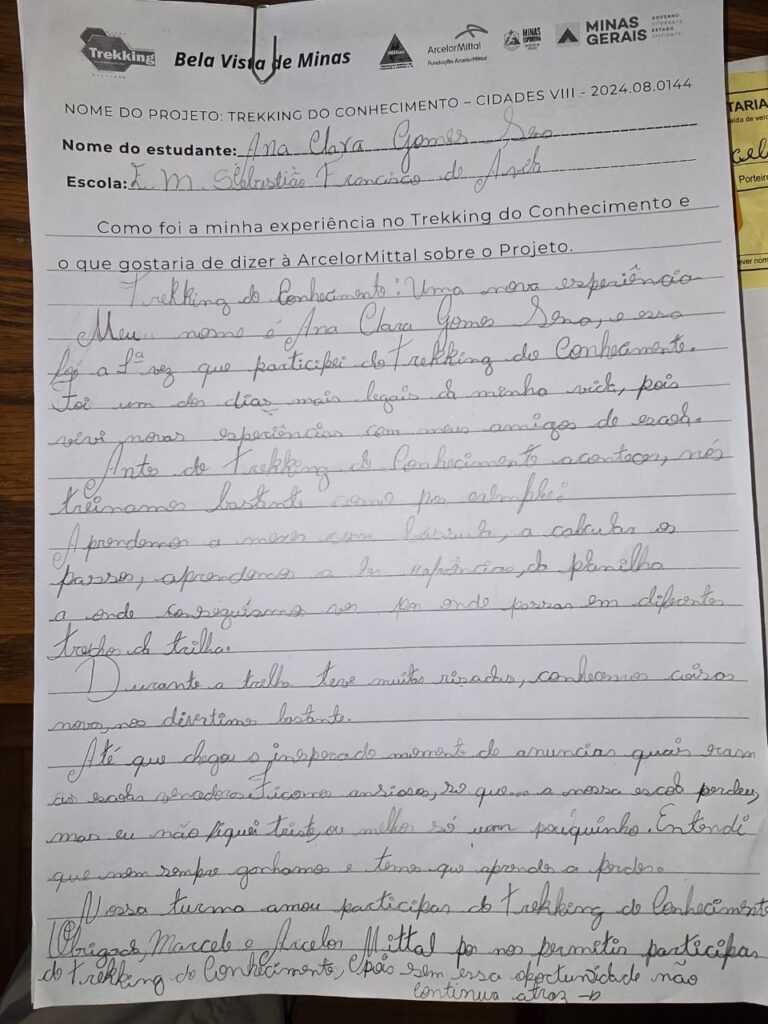 Trekking
Bela Vista de Minas
ArcelorMittal
Fundação ArcelorMittal
MINAS ESPORTIVA
MINAS GERAIS
GOVERNO DIFERENTE ESTADO EFICIENTE
NOME DO PROJETO: TREKKING DO CONHECIMENTO – CIDADES VIII - 2024.08.0144
Nome do estudante: Ana Clara Gomes Sena
Escola: E. M. Sebastião Francisco de
Como foi a minha experiência no Trekking do Conhecimento e
o que gostaria de dizer à ArcelorMittal sobre o Projeto.
Trekking do Conhecimento: Uma nova experiência
Meu nome é Ana Clara Gomes Sena, e essa
foi a 1ª vez que participei do Trekking do Conhecimento.
Foi um dos dias mais legais da minha vida, pois
vivi novas experiências com meus amigos de escola.
Antes do Trekking do Conhecimento acontecer, nós
treinamos bastante como por
Aprendemos a mexer com bússula, a calcular os
passos, aprendemos a ler referências, da planilha
a onde conseguíamos ver por onde passar em diferentes
trechos da trilha.
Durante a trilha teve muitas risadas, conhecemos coisas
novas, nos divertimos bastante.
Até que chegou o inesperado momento de anunciar quais eram
as escolas Ficamos ansiosos, só que a nossa escola perdeu,
mas eu não fiquei triste, ou melhor só um pouquinho. Entendi
que nem sempre ganhamos e temos que aprender a perder.
Nossa turma amou participar do Trekking do Conhecimento
Obrigada, Marcelo e Arcelor Mittal por nos permitir participar
do Trekking do Conhecimento, pois sem essa oportunidade não
continua atraz
TARIA
Porteiro